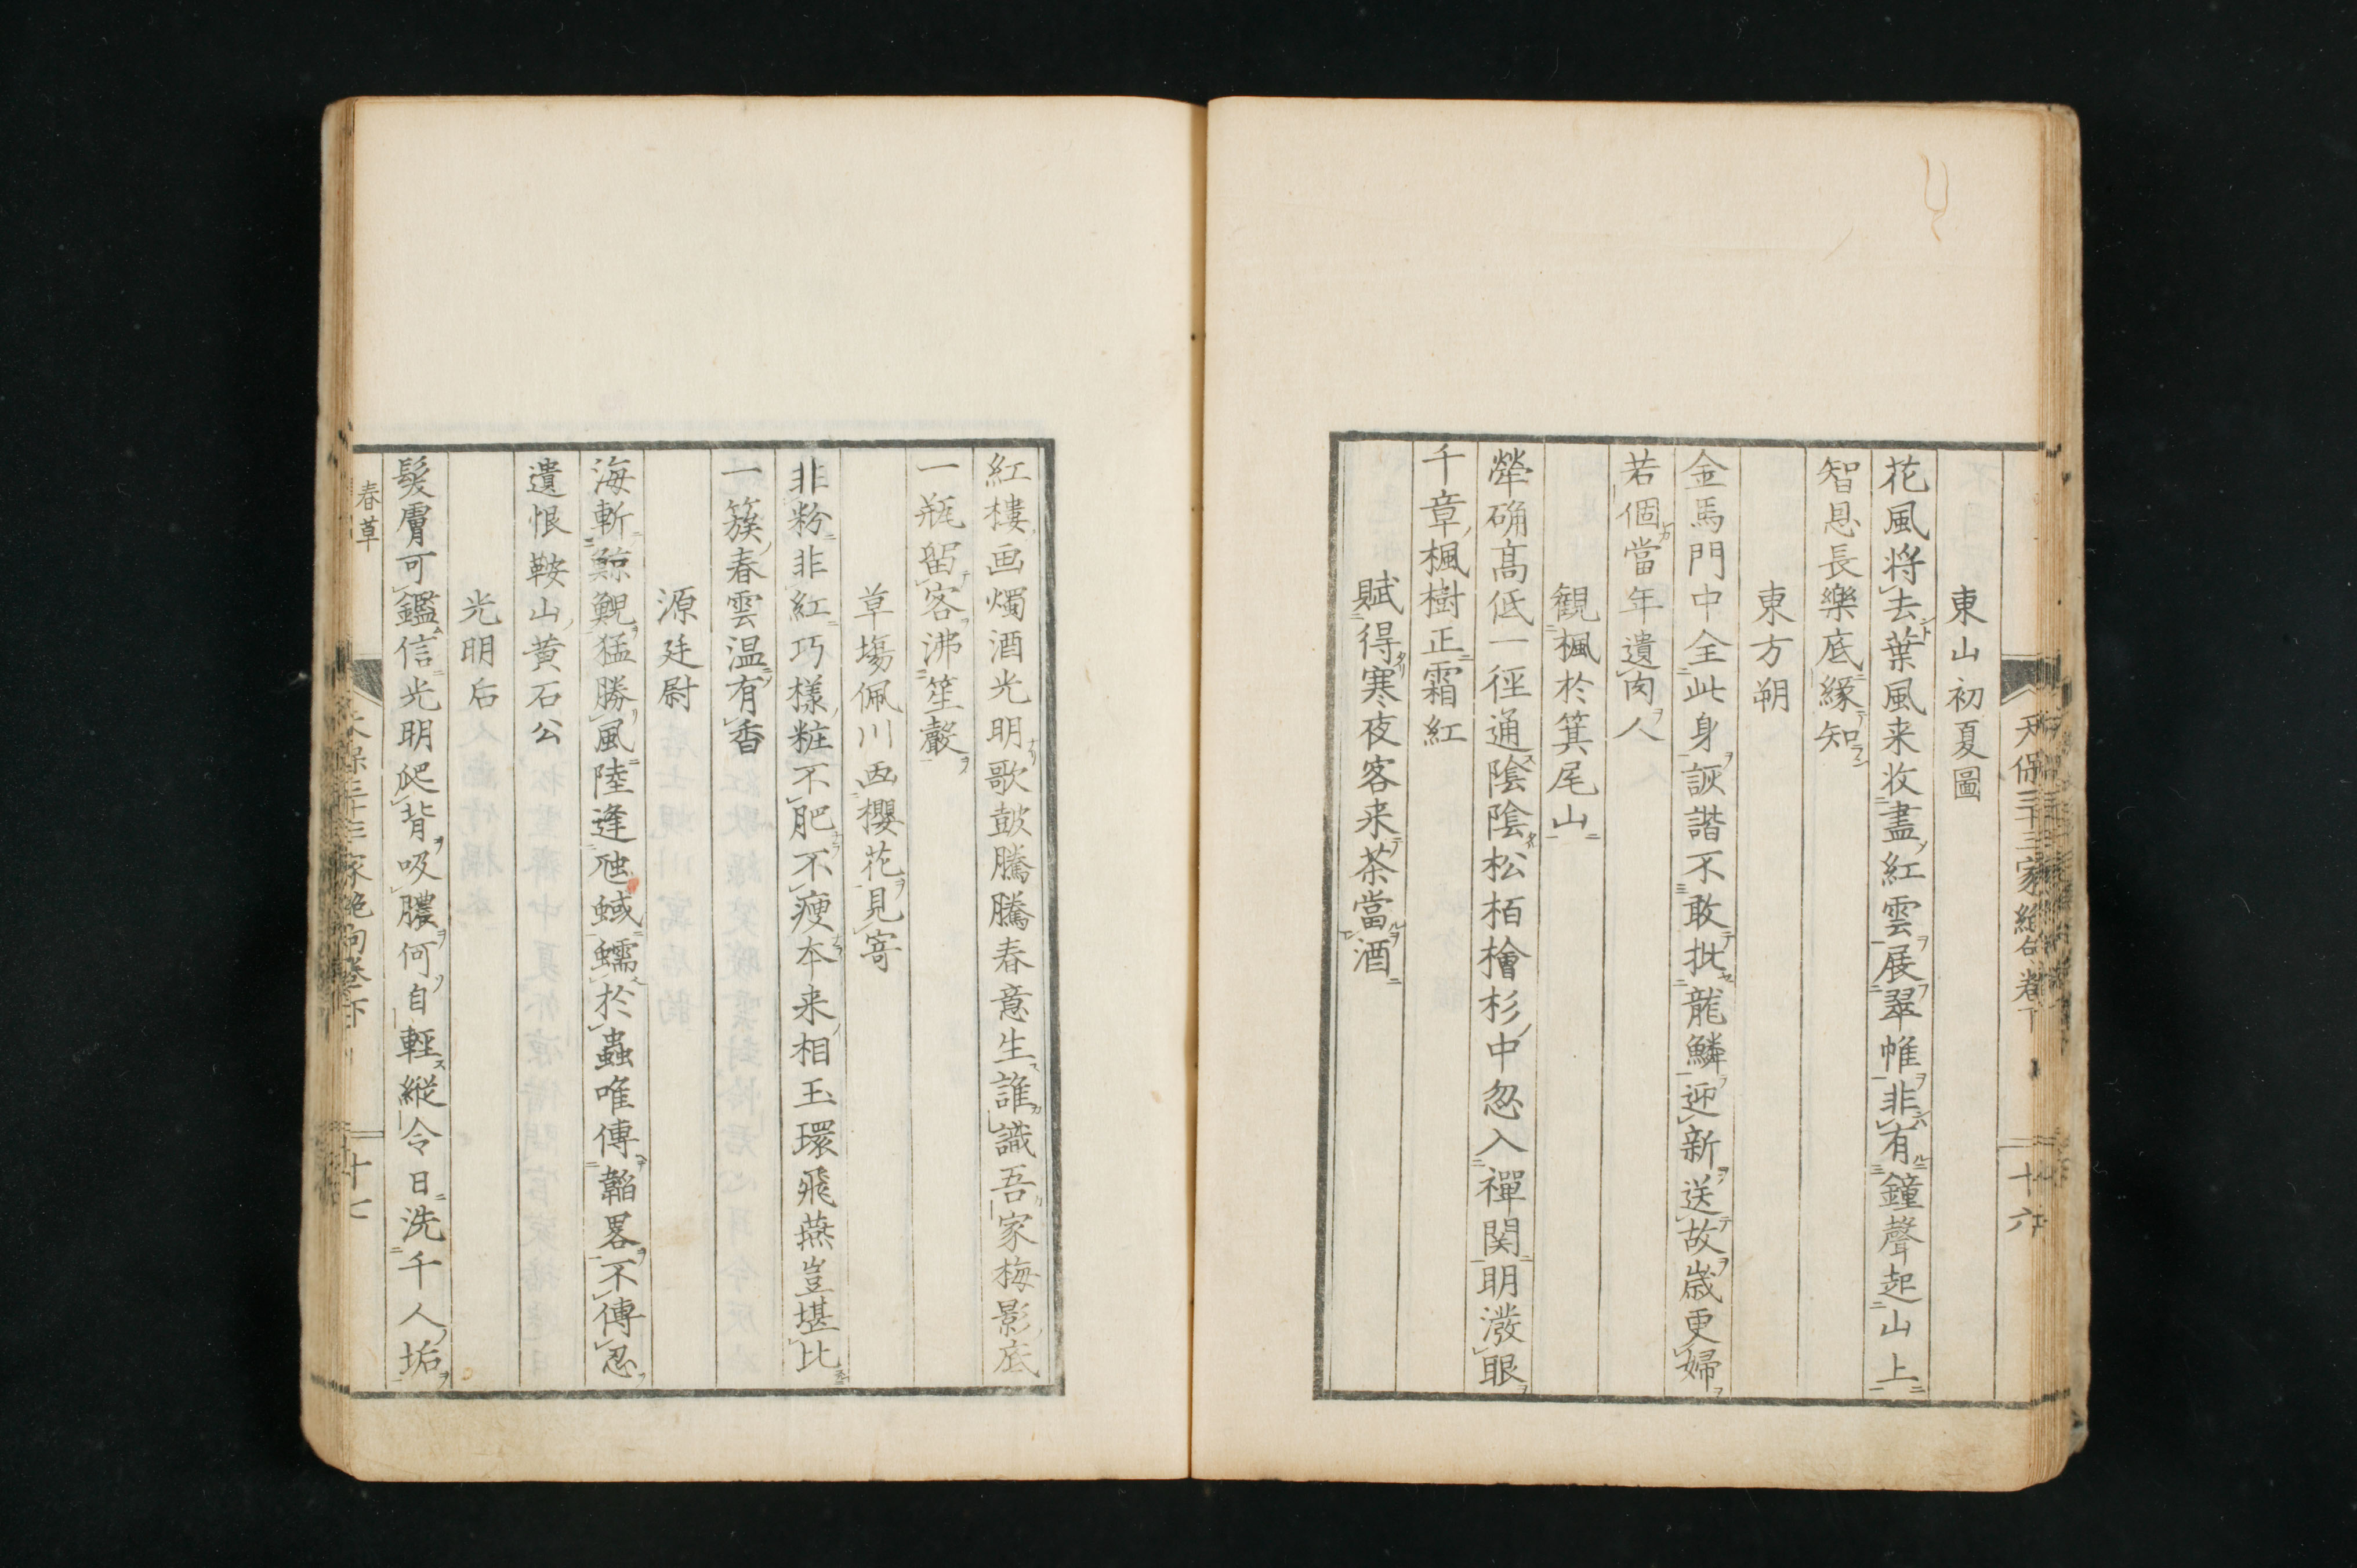 東山初夏圖
花風將去葉風来收盡紅雲展翠帷非有鐘聲起山上
智恩長樂底緣知
東方朔
金馬門中全此身詼諧不敢批龍鱗迎新送故歳更婦
若個當年遺肉人
観楓於箕尾山
犖确髙低一徑通陰陰松栢檜杉中忽入禪関明潑眼
千章楓樹正霜紅
賦得寒夜客来茶當酒
天保三十三家絶句卷下
十六
紅樓画燭酒光明歌鼓騰騰春意生誰識吾家梅影底
一瓶留客沸笙聲
草塲佩川画櫻花見寄
非粉非紅巧樣粧不肥不瘦本来相玉環飛燕豈堪比
一簇春雲温有香
源廷尉
海斬鯨鯢猛勝風陸逢虺蜮蠕於蟲唯傳韜畧不傳忍
遺恨鞍山黄石公
光明后
髮膚可鑑信光明爬背吸膿何自輕縱令日洗千人垢
春草
天保三十三家絶句卷下
十七